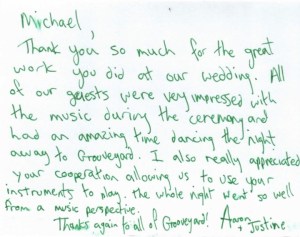 Michael,
Thank you, so much for the great
work you did at our wedding. All
of our guests were very impressed with
the music during the ceremony and
had an amazing time dancing the night
away to Grooveyard. I also really appreciated
your cooperation allowing us to use your
instruments to play. The whole night went so well
from a music perspective.
Thanks again to all of Grooveyard! Aaron
+ Justine